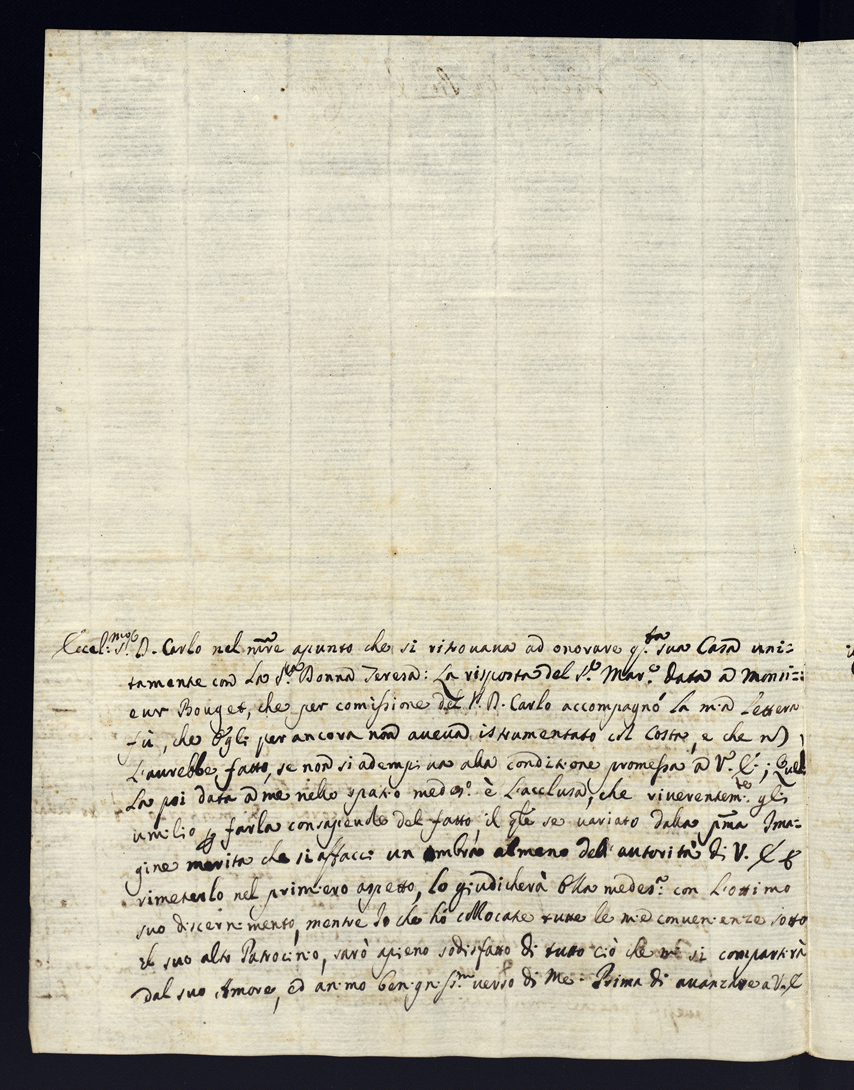 Eccel:mo S.r D. Carlo nel mre apunto che si ritrovava ad onorare q.sta sua Casa uni=
tamente con la S.ra Donna Teresa: La risposta del S.r Mar.e data a Monsi=
eur Bouget, che per comissione del S.r D. Carlo accompagnò la mia Lettera
fù, che Egli per ancora non aueua istrumentato col Costa, e che nò
L'aurebbe fatto, se non si adempiua alla condizione promessa a V. E.; Quel
La poi data a me nello spatio medes.o è L'acclusa, che riuerentem.te gli
umilio p farla consapeuole del fatto, il qle se uariato dalla pma Ima=
gine merita che si affacci un ombra almeno dell'autorità di V. E. p
rimeterlo nel primiero aspetto, lo giudicherà Ella medes.a con L'ottimo
suo discernimento, mentre Io che hò collocate tutte le mie conuenienze sotto
il suo alto Patrocinio, sarò apieno sodisfatto di tutto ciò che mi si compartirà
dal suo Amore, ed animo benigniss.mo uerso di Me. Prima di auanzare a V. E